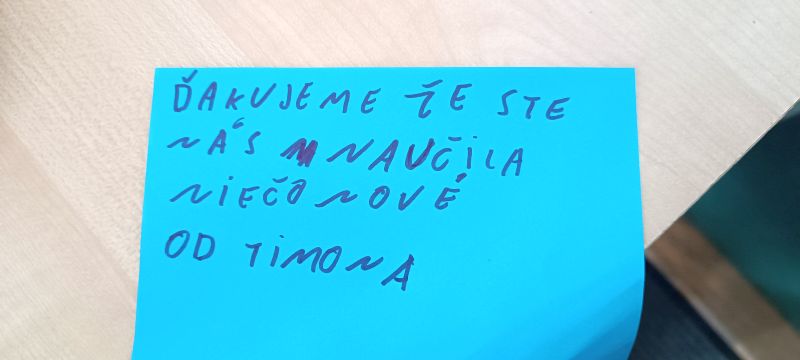 ĎAKUJEME ŽE STE
NÁS NAUČILA
NIEČO NOVÉ
OD TIMONA